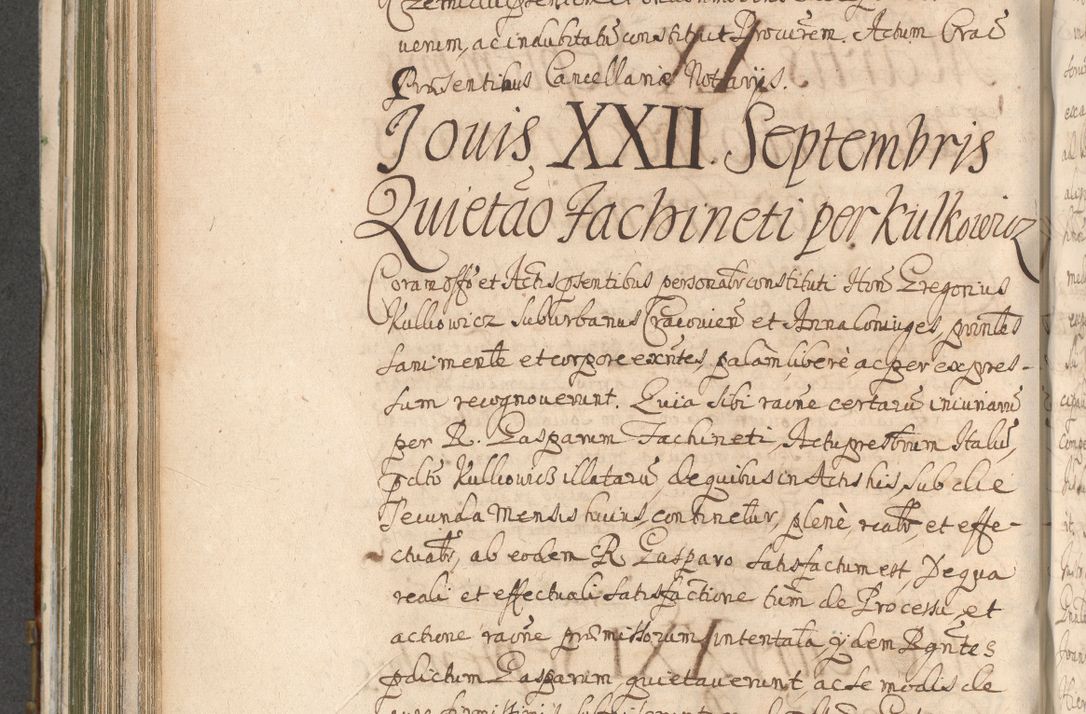 uerum, ac indubitatũ constituit Procurẽm. Actum Crac̃
Præsentibus Cancellariæ Notarijs.
Jouis XXII. Septembris
Quietão Fachineti per Kulkowicz
Coram offõ et Actis p̃sentibus personalr̃ constituti Hon̄ Gregorius
Kulkowicz Suburbanus Cracovieñ et Anna Coniuges, principles
sani mente et corpore exñtes, palam liberè ac per expres-
sum recognouerunt. Quia sibi raõne certarũ iniuriarũ
per R. Gasparum Fachineti, Actu presbrũm Italũ,
p̃dto Kulkowicz illatarũ, de quibus in Actis his, sub die
Secunda Mensis huius, continetur, plenè, realr̃, et effe-
ctualr̃, ab eodem R. Gasparo satisfactum est, De qua
reali et effectuali satisfactione tum de Processu, et
actione raõne præmissorum intentata, q̃dem Rgñtes
p̃dictum Gasparum quietauerunt ac se modis de